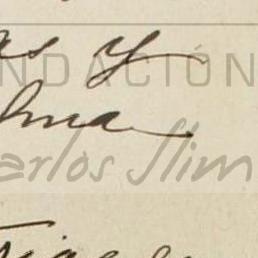 as y
NDACIÓN
lma
arlos Slim